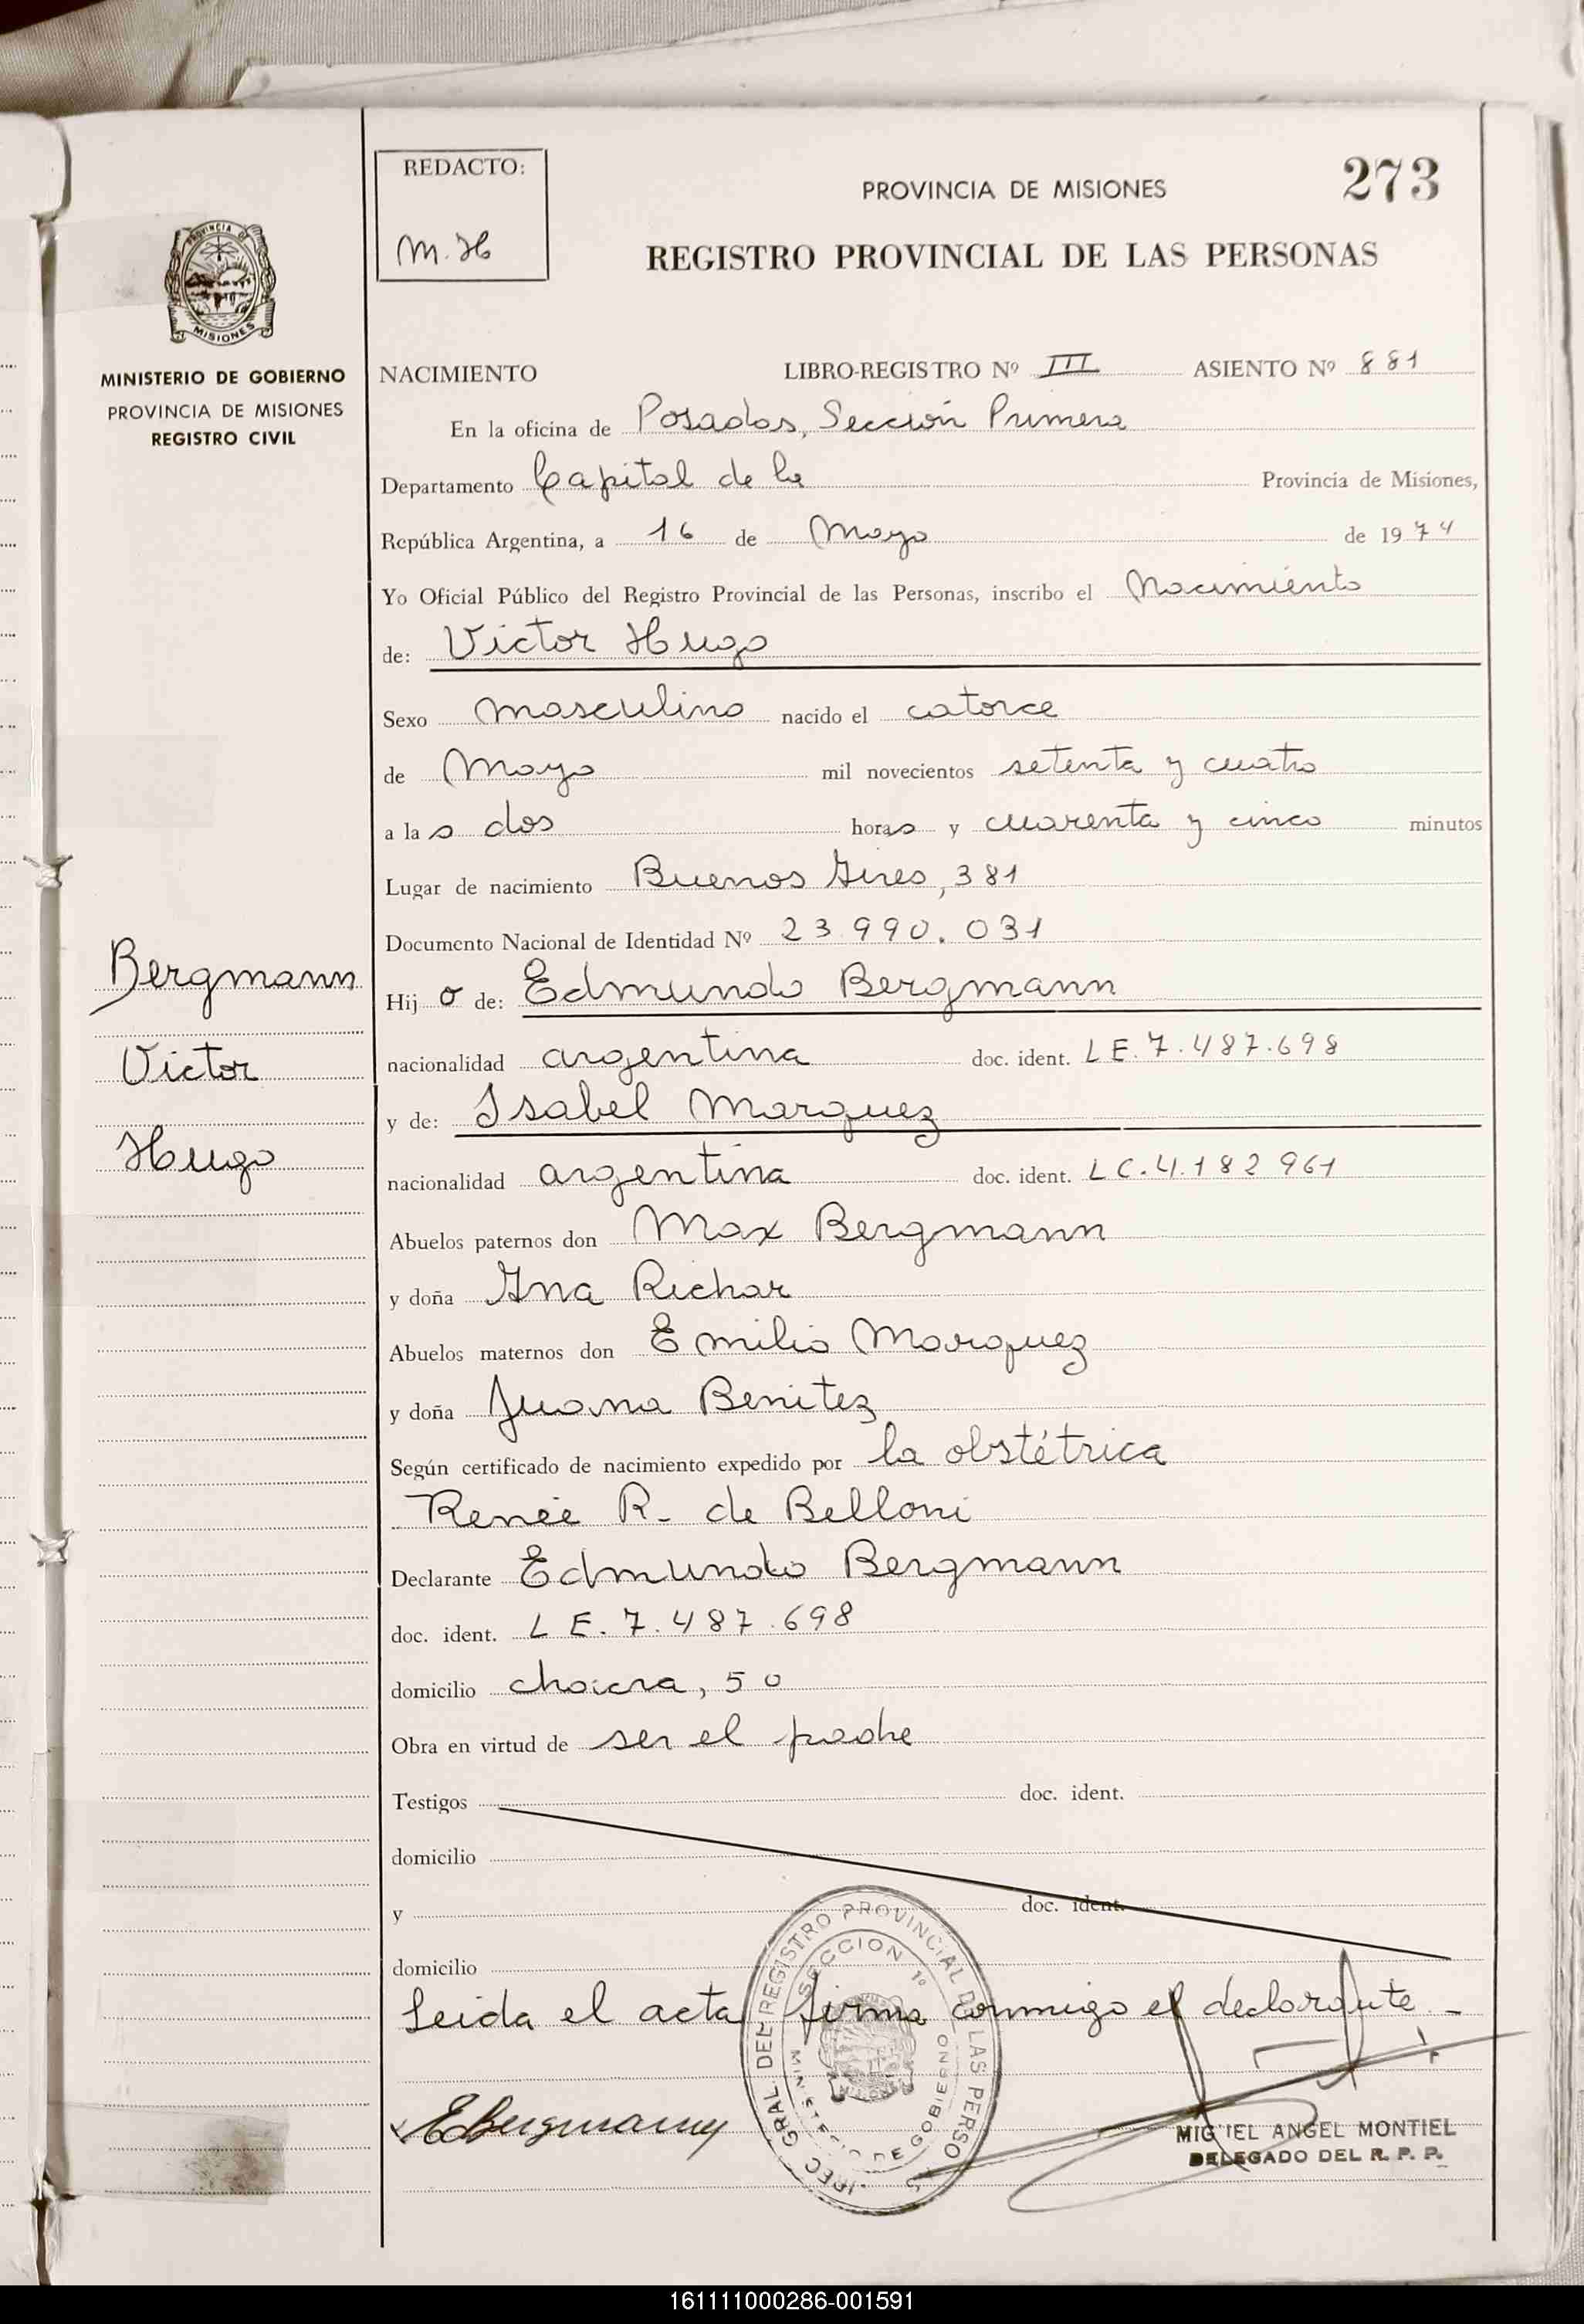 REDACTO:
M. H
PROVINCIA DE MISIONES
273
REGISTRO PROVINCIAL DE LAS PERSONAS
PROVINCIA DE
MISIONES
MINISTERIO DE GOBIERNO
PROVINCIA DE MISIONES
REGISTRO CIVIL
NACIMIENTO LIBRO-REGISTRO Nº III ASIENTO Nº 881
En la oficina de Posadas, Sección Primera
Departamento Capital de la Provincia de Misiones,
República Argentina, a 16 de Mayo de 1974
Yo Oficial Público del Registro Provincial de las Personas, inscribo el Nacimiento
de: Victor Hugo
Sexo masculino nacido el catorce
de Mayo mil novecientos setenta y cuatro
a las dos horas y cuarenta y cinco minutos
Lugar de nacimiento Buenos Aires, 381
Documento Nacional de Identidad Nº 23.990.031
Bergmann
Victor
Hugo
Hijo de: Edmundo Bergmann
nacionalidad argentina doc. ident. LE. 7.487.698
y de: Isabel Marquez
nacionalidad argentina doc. ident. LC. 4.182 961
Abuelos paternos don Max Bergmann
y doña Ana Richar
Abuelos maternos don Emilio Marquez
y doña Juana Benitez
Según certificado de nacimiento expedido por la obstétrica
Renée R. de Belloni
Declarante Edmundo Bergmann
doc. ident. LE. 7.487.698
domicilio chacra, 50
Obra en virtud de ser el padre
Testigos doc. ident.
domicilio
y doc. ident.
domicilio
Leida el acta firma conmigo el declarante. -
EBergmann
MIGUEL ANGEL MONTIEL
DELEGADO DEL R. P. P.
GRAL. DEL REGISTRO PROVINCIAL DE LAS PERSO
SECCION 1º
MINISTERIO DE GOBIERNO
161111000286-001591